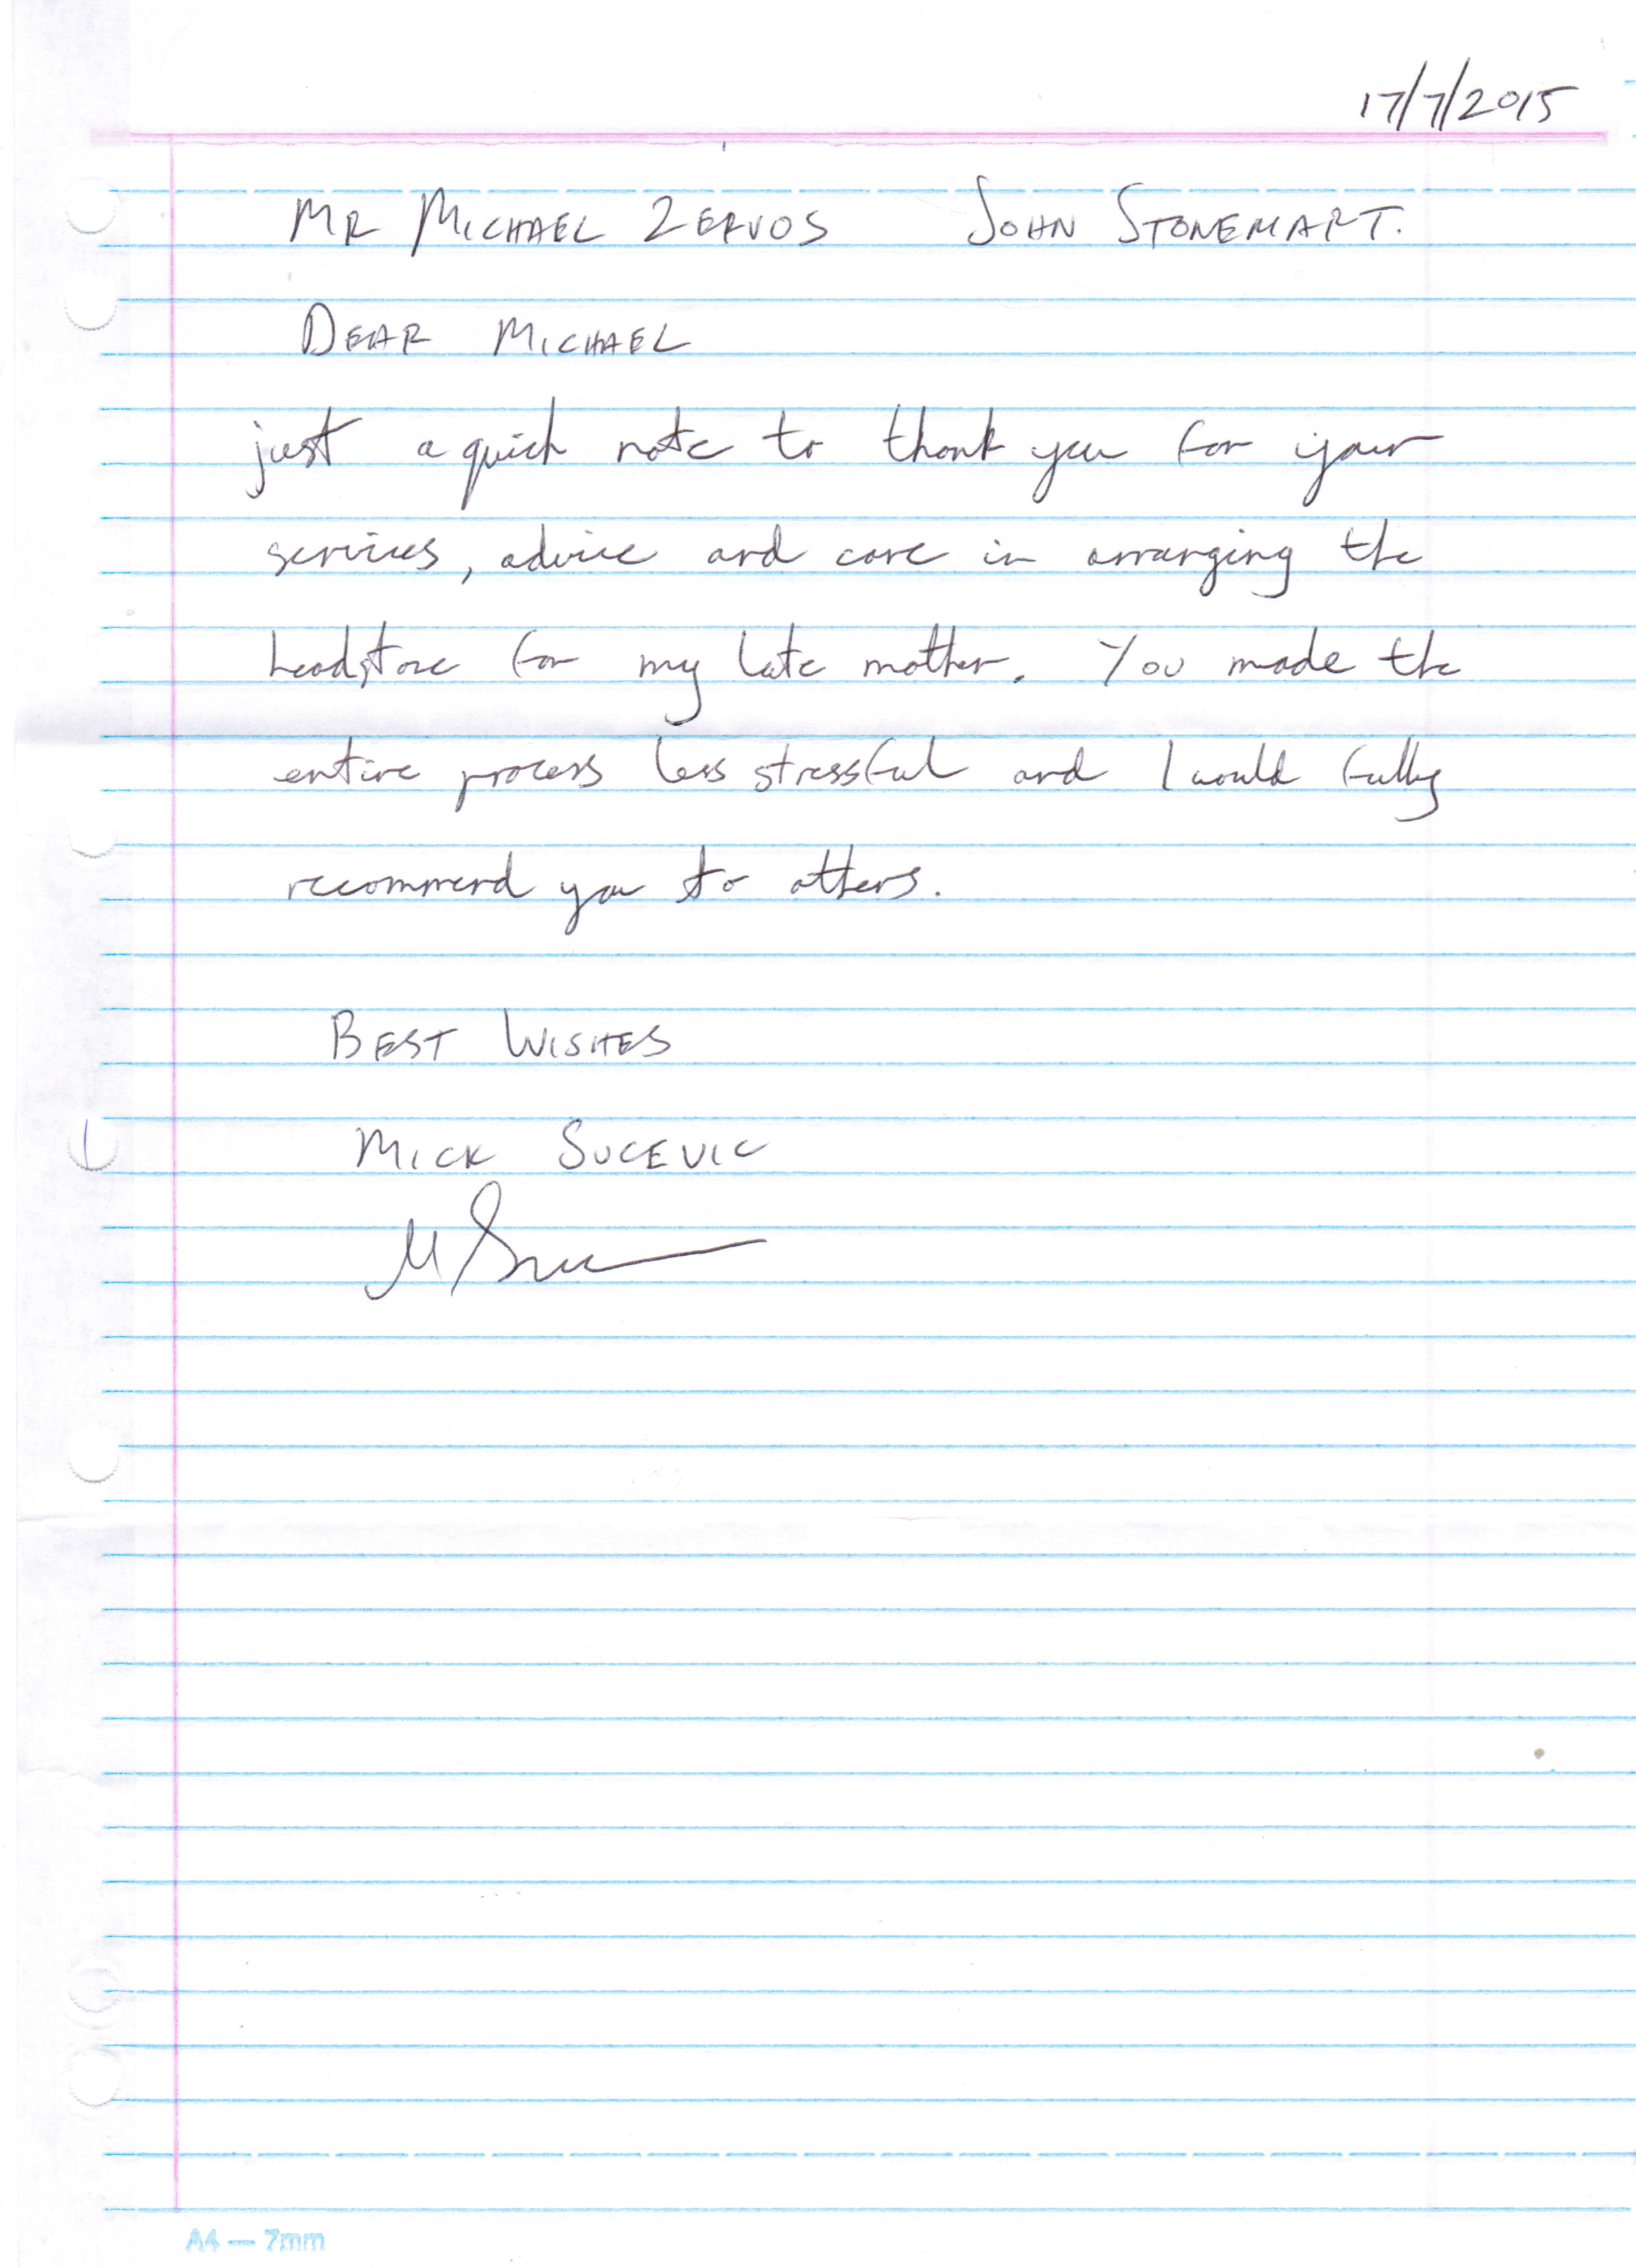 17/7/2015
MR MICHAEL ZERVOS JOHN STONEMART.
DEAR MICHAEL
just a quick note to thank you for your
services, advice and care in arranging the
headstone for my late mother. You made the
entire process less stressful and I would fully
recommend you to others.
BEST WISHES
MICK SUCEVIC
A4 — 7mm